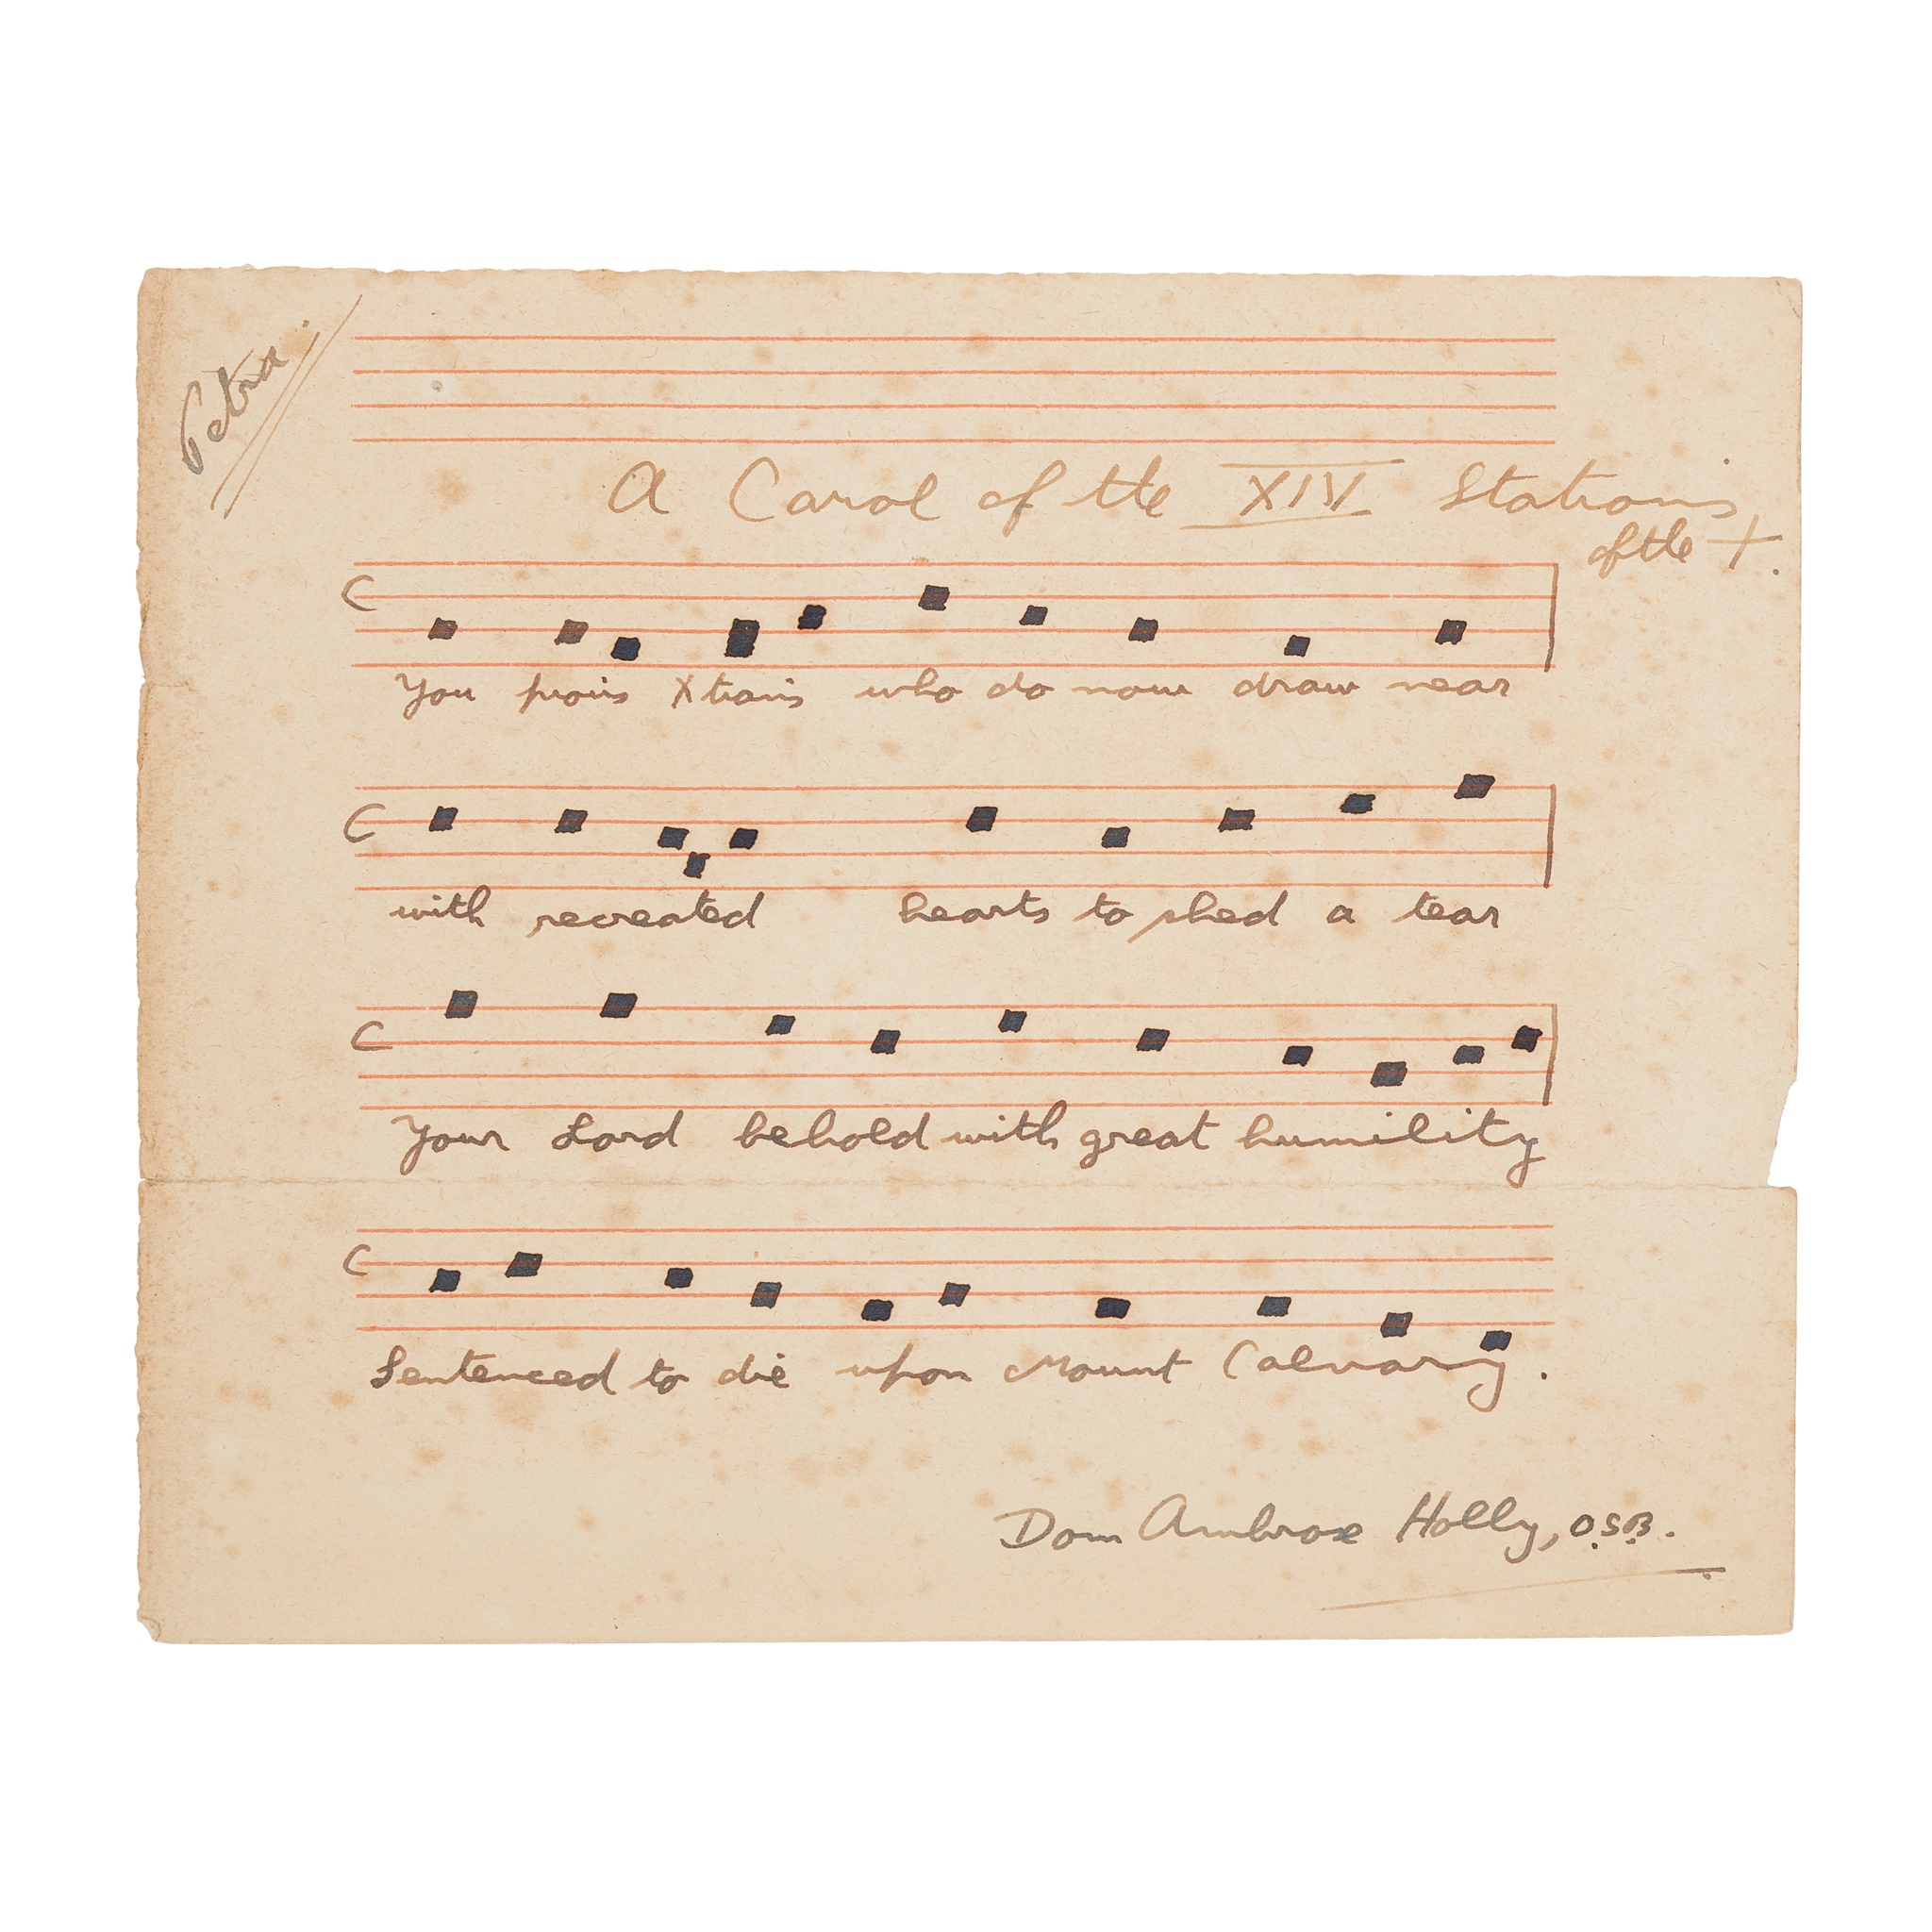 Petra.
A Carol of the XIV Stations
of the +.
C
You pious Xtians who do now draw near
C
with recreated hearts to shed a tear
C
Your Lord behold with great humility
C
Sentenced to die upon Mount Calvary.
Dom Ambrose Holly, O.S.B.